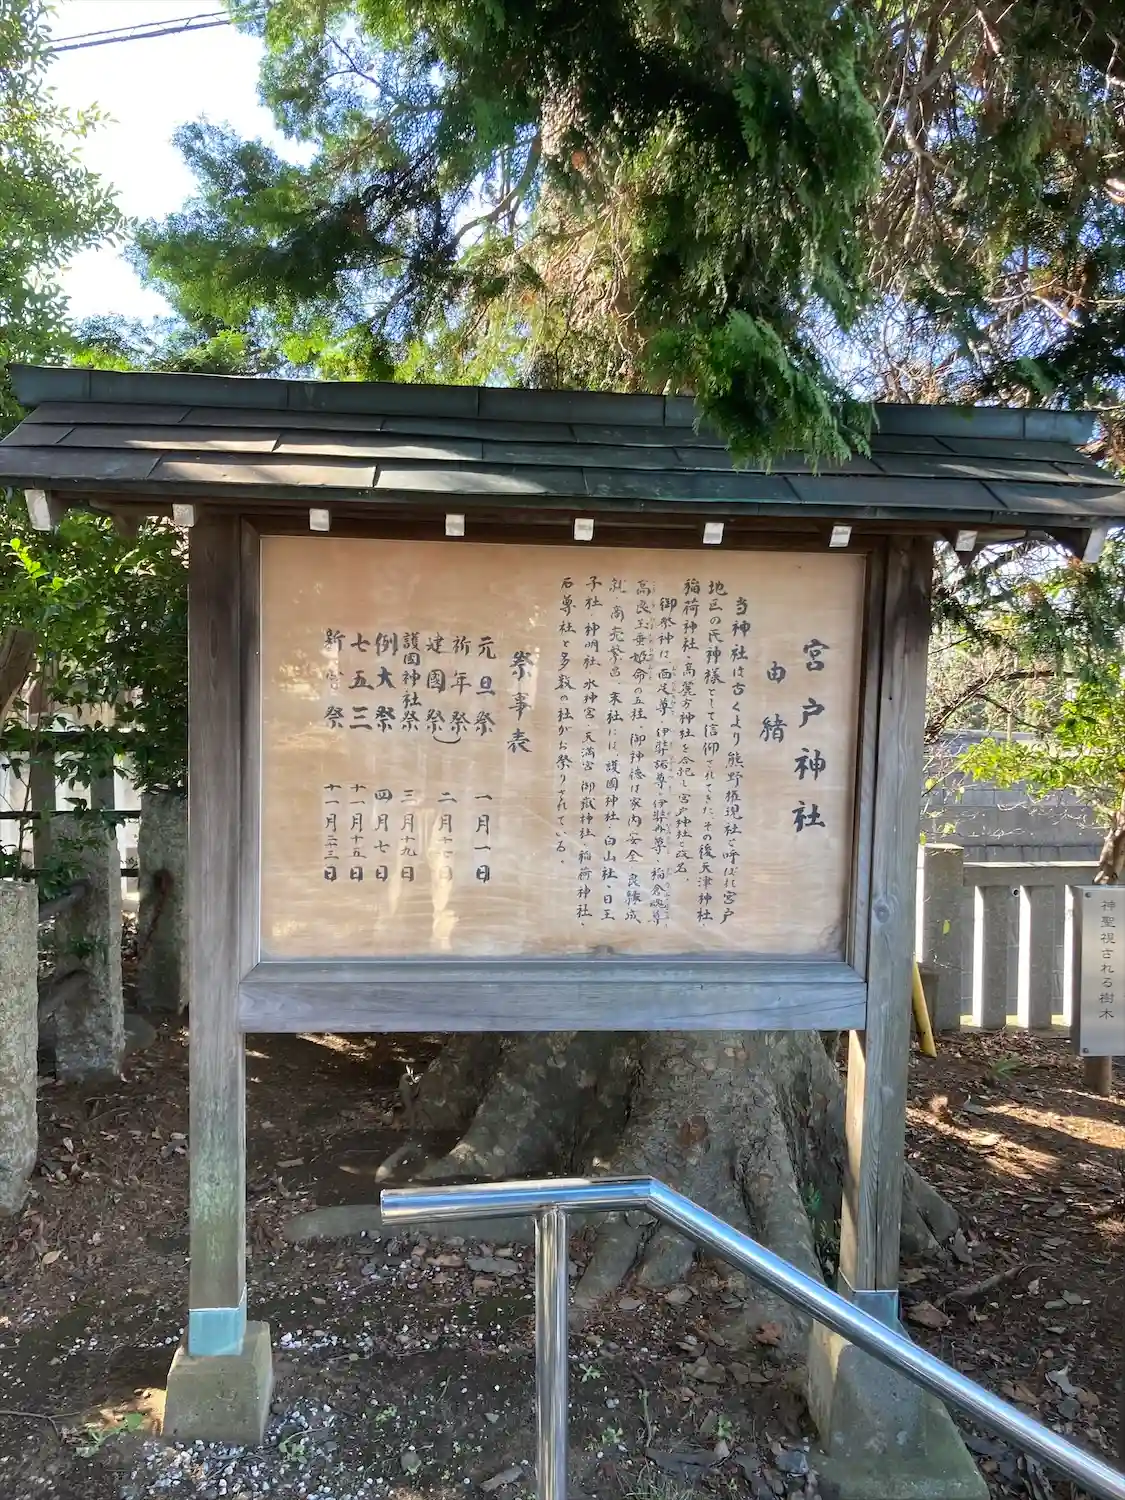 宮戸神社
由緒
当神社は古くより熊野権現社と呼ばれ宮戸
地区の氏神様として信仰されてきた。その後天津神社、
稲荷神社、高麗方神社を合祀し宮戸神社と改名
御祭神は、面足尊、伊弉諾尊、伊弉冉尊、稲倉魂尊
高良玉垂姫命の五柱、御神徳は家内安全、良縁成
就、商売繁昌、末社には、護國神社、白山社、日王
子社、神明社、水神宮、天満宮、御嶽神社、稲荷神社、
石尊社と多数の社がお祭りされている。
祭事表
元旦祭 一月一日
祈年祭
建國祭 二月十一日
護國神社祭 三月十九日
例大祭 四月七日
七五三 十一月十五日
新嘗祭 十一月二十三日
神聖視される樹木